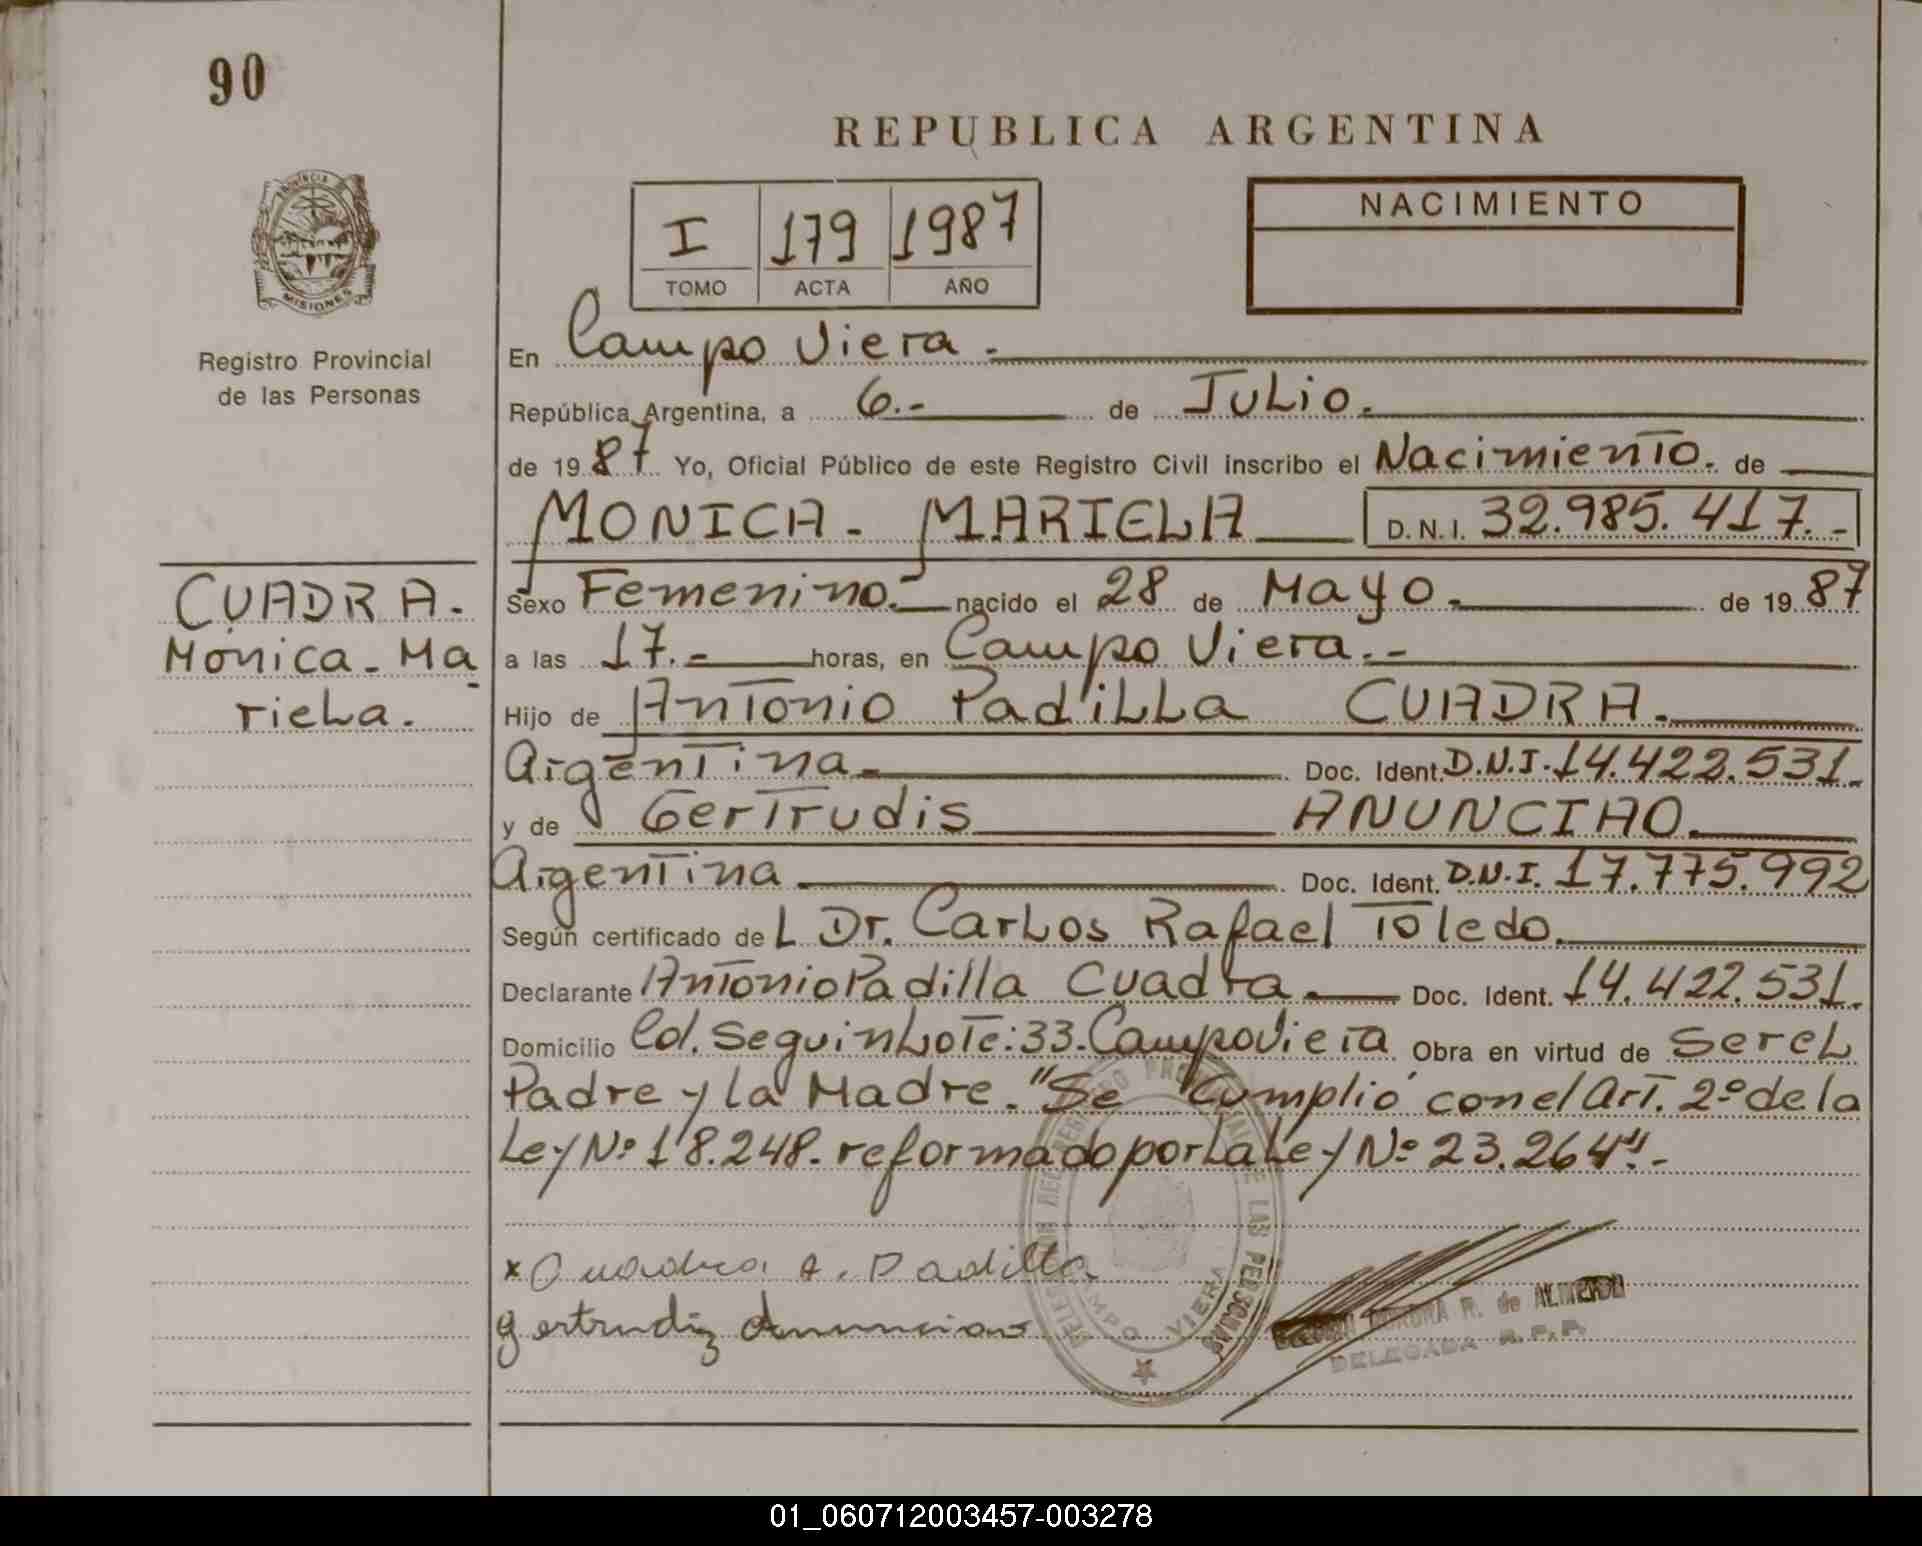 90
REPUBLICA ARGENTINA
PROVINCIA
MISIONES
Registro Provincial
de las Personas
I 179 1987
TOMO ACTA AÑO
NACIMIENTO
En Campo Viera.-
República Argentina, a 6.- de Julio.
de 1987 Yo, Oficial Público de este Registro Civil inscribo el Nacimiento. de
MONICA - MARIELA D.N.I. 32.985.417.-
CUADRA.
Monica - Ma
riela.
Sexo Femenino.- nacido el 28 de Mayo. de 1987
a las 17.- horas, en Campo Viera.-
Hijo de Antonio Padilla CUADRA.
Argentina.- Doc. Ident. D.N.I. 14.422.531.
y de Gertrudis ANUNCIAO.
Argentina Doc. Ident. D.N.I. 17.775.992
Según certificado del Dr. Carlos Rafael Toledo.
Declarante Antonio Padilla Cuadra. Doc. Ident. 14.422.531.
Domicilio Col. Seguin Lote: 33. Campo Viera Obra en virtud de Ser el
Padre y la Madre. "Se cumplió con el Art. 2º de la
Ley Nº 18.248. reformado por la Ley Nº 23.264".-
x Cuadra A. Padilla
gertrudiz Anunciao
REGISTRO PROVINCIAL DE LAS PERSONAS
CAMPO VIERA
R. de ALMEIDA
DELEGADA R.P.P.
01_060712003457-003278